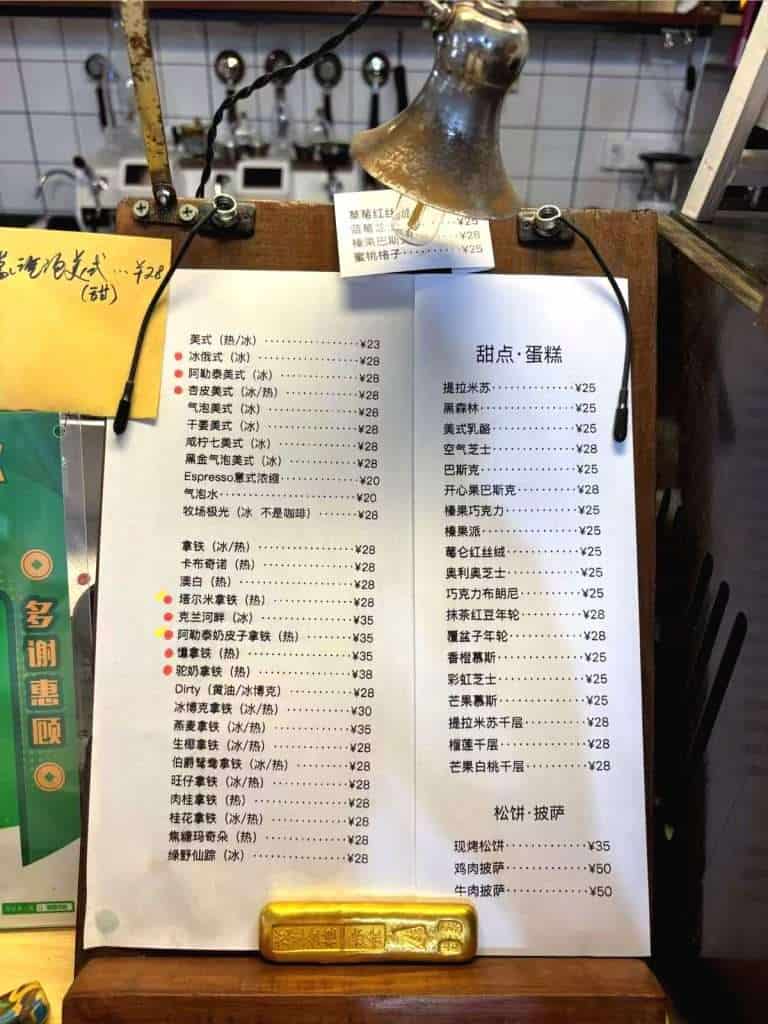 草莓红丝绒 ¥25
蓝莓芝 ¥28
榛果巴斯 ¥28
蜜桃格子········¥25
美式 … ¥28
(甜)
美式（热/冰）··················¥23
冰俄式（冰）··················¥28
阿勒泰美式（冰）··················¥28
杏皮美式（冰/热）··················¥28
气泡美式（冰）··················¥28
干姜美式（冰）··················¥28
咸柠七美式（冰）··················¥28
黑金气泡美式（冰）··················¥28
Espresso意式浓缩··················¥20
气泡水··················¥20
牧场极光（冰 不是咖啡）·········¥28
拿铁（冰/热）··················¥28
卡布奇诺（热）··················¥28
澳白（热）··················¥28
塔尔米拿铁（热）··················¥28
克兰河畔（冰）··················¥35
阿勒泰奶皮子拿铁（热）·········¥35
馕拿铁（热）··················¥35
驼奶拿铁（热）··················¥38
Dirty（黄油/冰博克）·········¥28
冰博克拿铁（冰/热）·········¥30
燕麦拿铁（冰/热）··················¥35
生椰拿铁（冰/热）··················¥28
伯爵鸳鸯拿铁（冰/热）·········¥28
旺仔拿铁（冰/热）··················¥28
肉桂拿铁（热）··················¥28
桂花拿铁（冰/热）··················¥28
焦糖玛奇朵（热）··················¥28
绿野仙踪（冰）··················¥28
甜点·蛋糕
提拉米苏············¥25
黑森林············¥25
美式乳酪············¥25
空气芝士············¥28
巴斯克············¥25
开心果巴斯克·········¥28
榛果巧克力············¥25
榛果派············¥25
莓仑红丝绒············¥25
奥利奥芝士············¥25
巧克力布朗尼·········¥25
抹茶红豆年轮·········¥28
覆盆子年轮············¥28
香橙慕斯············¥25
彩虹芝士············¥25
芒果慕斯············¥25
提拉米苏千层·········¥28
榴莲千层············¥28
芒果白桃千层·········¥28
松饼·披萨
现烤松饼············¥35
鸡肉披萨············¥50
牛肉披萨············¥50
多谢惠顾